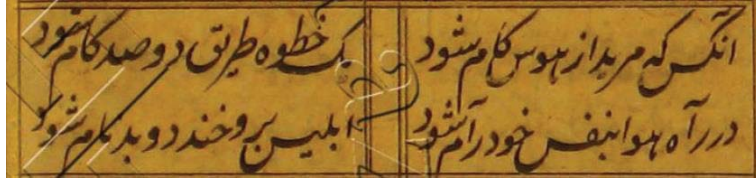 آنکس که مرید از هوس کام شود
یک خطوه طریق دو صد کام شود
در راه هوا بنفس خود رام شود
ابلیس برو خندد و بدنام شود